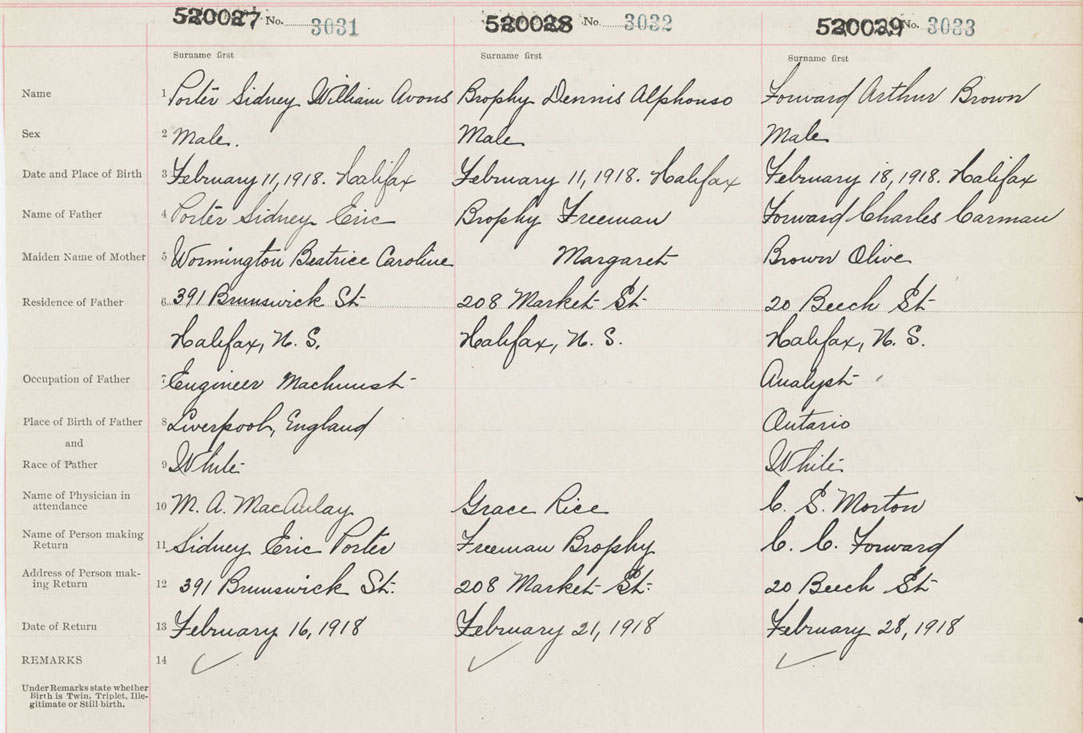 520027 No. 3031 520028 No. 3032 520029 No. 3033
Surname first Surname first Surname first
Name 1 Porter Sidney William Avons Brophy Dennis Alphonso Forward Arthur Brown
Sex 2 Male. Male Male
Date and Place of Birth 3 February 11, 1918. Halifax February 11, 1918. Halifax February 18, 1918. Halifax
Name of Father 4 Porter Sidney Eric Brophy Freeman Forward Charles Carman
Maiden Name of Mother 5 Wormington Beatrice Caroline Margaret Brown Olive
Residence of Father 6 391 Brunswick St 208 Market St 20 Beech St
Halifax, N. S. Halifax, N. S. Halifax, N. S.
Occupation of Father 7 Engineer Machinist Analyst
Place of Birth of Father 8 Liverpool, England Ontario
and
Race of Father 9 White White
Name of Physician in attendance 10 M. A. MacAulay Grace Rice C. S. Morton
Name of Person making Return 11 Sidney Eric Porter Freeman Brophy C. C. Forward
Address of Person mak-ing Return 12 391 Brunswick St. 208 Market St. 20 Beech St
Date of Return 13 February 16, 1918 February 21, 1918 February 28, 1918
REMARKS 14
Under Remarks state whether
Birth is Twin, Triplet, Ille-
gitimate or Still-birth.